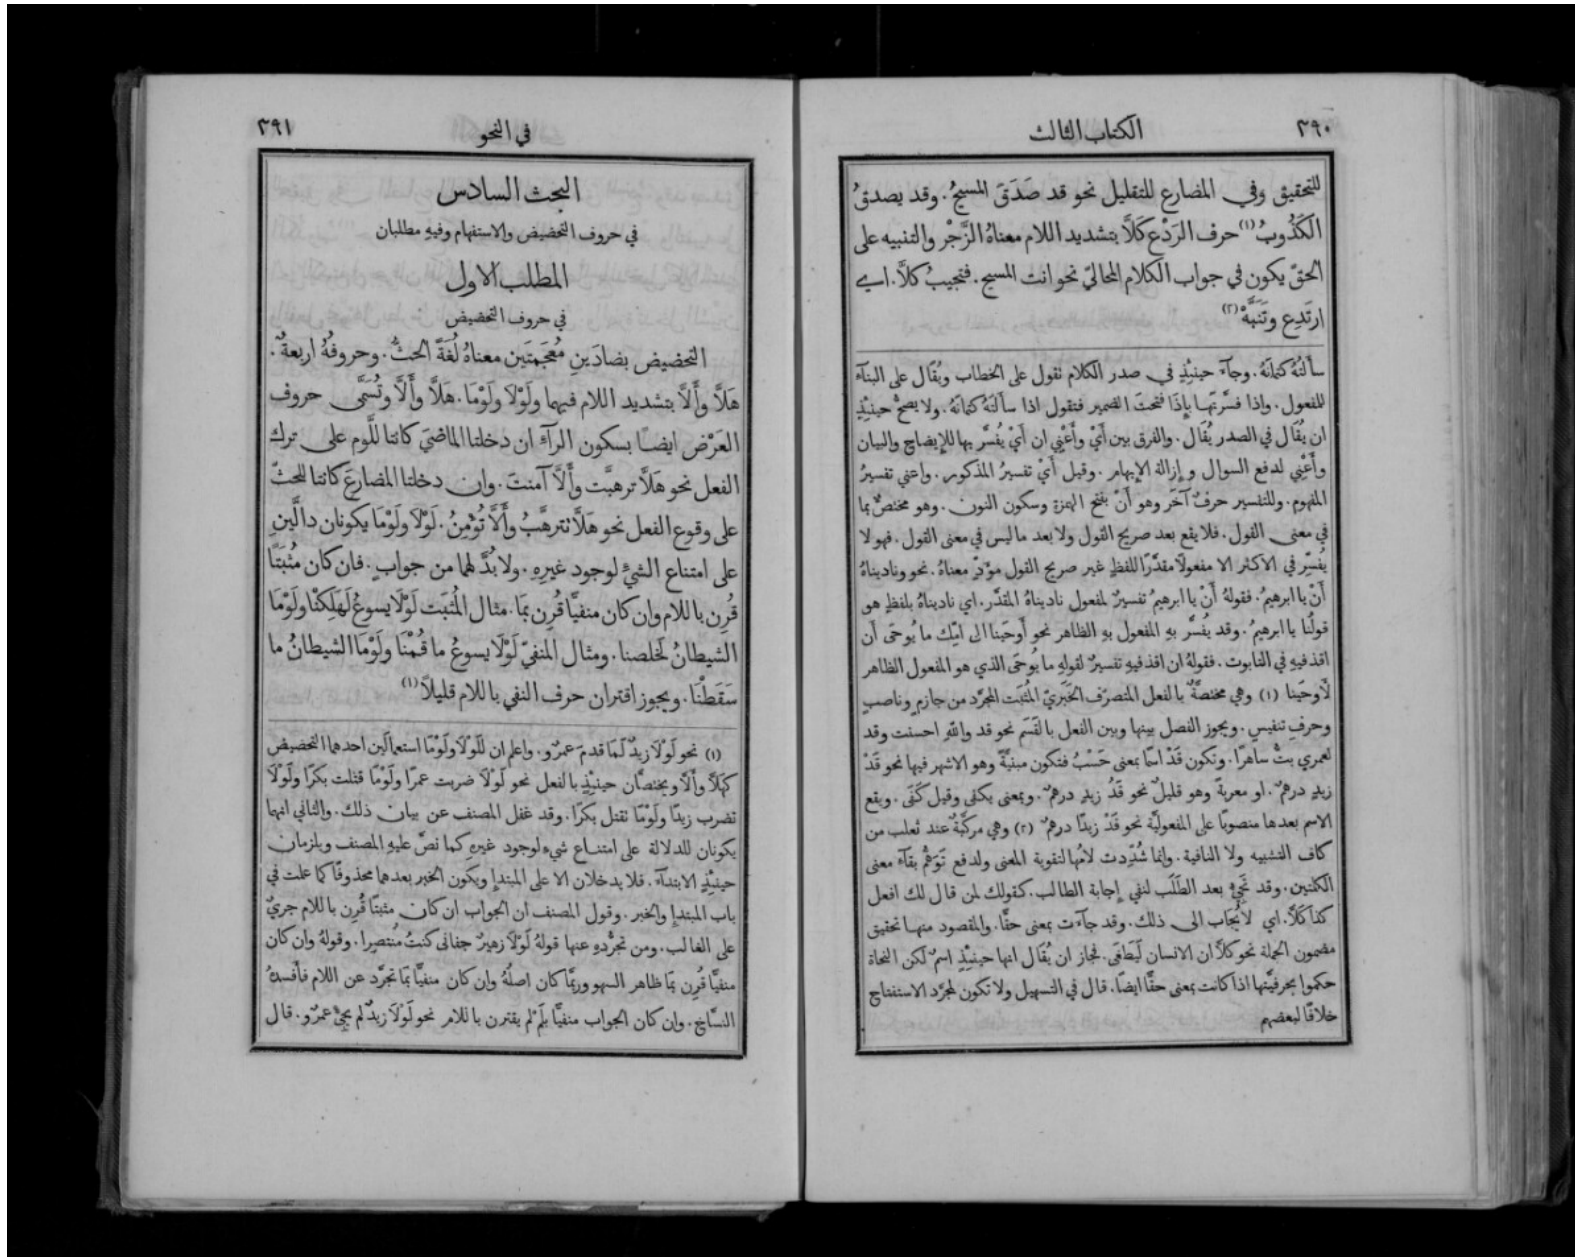 ٣٩٠
الكتاب الثالث
للتحقيق وفي المضارع للتقليل نحو قد صَدَقَ المسيحُ. وقد يصدقُ
الكَذُوبُ (١) حرف الرَدْع كَلَّا بتشديد اللام معناهُ الزَّجْر والتنبيه على
الحقّ يكون في جواب الكلام المحاليّ نحو انت المسيح. فتجيبُ كلَّا. اي
ارتَدِع وتَنَبَّهْ (٢)
سأَلتُهُ كتمانَهُ. وجآءَ حينئِذٍ في صدر الكلام تقول على الخطاب ويُقَال على البنآءَ
للمفعول. واذا فسَّرتَهـا بإِذَا فتحتَ الضمير فتقول اذا سأَلتَهُ كتمانَهُ. ولا يصحُّ حينئِذٍ
ان يُقَال في الصدر يُقَال. والفرق بين أَيْ وأَعْنِي ان أَيْ يُفسَّر بها للإِيضاح والبيان
وأَعْنِي لدفع السوال وإِزالة الإِبهام. وقيل أَيْ تفسيرُ المذكور. واعني تفسيرُ
المفهوم. وللتفسير حرفٌ آخَر وهو أَنْ بفتح الهمزة وسكون النون. وهو مختصٌّ بما
في معنى القول. فلا يقع بعد صريح القول ولا بعد ما ليس في معنى القول. فهو لا
يُفسِّر في الاكثر الا مفعولًا مقدَّرًا للفظٍ غير صريح القول مؤَدٍّ معناهُ. نحو وناديناهُ
أَنْ يا ابرهيمُ. فقولهُ أَنْ يا ابرهيمُ تفسيرٌ لمفعول ناديناهُ المقدَّر. اي ناديناهُ بلفظٍ هو
قولُنا يا ابرهيمُ. وقد يُفسَّر بهِ المفعول بهِ الظاهر نحو أَوحَينا الى امّك ما يُوحَى أَن
اقذفيهِ في التابوت. فقولهُ ان اقذفيهِ تفسيرٌ لقولهِ ما يُوحَى الذي هو المفعول الظاهر
لأَوحَينا (١) وهي مختصَّةٌ بالفعل المتصرّف الخَبَريّ المُثبَت المجرَّد من جازمٍ وناصبٍ
وحرفِ تنفيسٍ. ويجوز الفصل بينها وبين الفعل بالقَسَم نحو قد واللهِ احسنت وقد
لعمري بتُّ ساهرًا. وتكون قَدْ اسمًا بمعنى حَسْبُ فتكون مبنيَّةً وهو الاشهر فيها نحو قَدْ
زيدٍ درهمٌ. او معربةً وهو قليلٌ نحو قَدُ زيدٍ درهمٌ. وبمعنى يكفي وقيل كَفَى. ويقع
الاسم بعدها منصوبًا على المفعوليَّة نحو قَدْ زيدًا درهمٌ (٢) وهي مركَّبةٌ عند ثعلب من
كاف التشبيه ولا النافية. وإنما شُدِّدت لامُها لتقوية المعنى ولدفع تَوَهُّم بقآءَ معنى
الكلمتين. وقد تَجِيءُ بعد الطَلَب لنفي إِجابة الطالب. كقولك لمن قال لك افعل
كذا كَلَّا. اي لا يُجَاب الى ذلك. وقد جآءَت بمعنى حقًّا. والمقصود منهـا تحقيق
مضمون الجملة نحو كلَّا ان الانسان لَيَطغَى. فجاز ان يُقَال انها حينئِذٍ اسمٌ لكن النحاة
حكموا بحرفيَّتها اذا كانت بمعنى حقًّا ايضًا. قال في التسهيل ولا تكون لمجرَّد الاستفتاح
خلافًا لبعضهم
٣٩١
في النحو
البحث السادس
في حروف التحضيض والاستفهام وفيهِ مطلبان
المطلب الاول
في حروف التحضيض
التحضيض بضادَينِ مُعْجَمَتَين معناهُ لُغَةً الحثُّ. وحروفُهُ اربعةٌ.
هَلَّا وأَلَّا بتشديد اللام فيهما ولَوْلَا ولَوْمَا. هَلَّا وأَلَّا وتُسَمَّى حروف
العَرْض ايضًا بسكون الرآءِ ان دخلتا الماضيَ كانتا للَّوم على ترك
الفعل نحو هَلَّا ترهبَّت وأَلَّا آمنتَ. وان دخلتا المضارعَ كانتا للحثّ
على وقوع الفعل نحو هَلَّا تترهَّبُ وأَلَّا تُؤْمِنُ. لَوْلَا ولَوْمَا يكونان دالَّينِ
على امتناع الشيءِ لوجود غيرِهِ. ولا بُدَّ لهما من جوابٍ. فان كان مُثبَتًا
قُرِن باللام وان كان منفيًّا قُرِن بمَا. مثال المُثبَت لَوْلَا يسوعُ لَهَلِكْنا ولَوْمَا
الشيطانُ لَخلصنا. ومثال المنفيّ لَوْلَا يسوعُ ما قُمْنَا ولَوْمَا الشيطانُ ما
سَقَطْنَا. ويجوز اقتران حرف النفي باللام قليلًا (١)
(١) نحو لَوْلَا زيدٌ لَمَا قدم عمرٌو. واعلم ان للَوْلَا ولَوْمَا استعمالَين احدهما التحضيض
كهَلَّا وأَلَّا ويختصَّان حينئِذٍ بالفعل نحو لَوْلَا ضربت عمرًا ولَوْمَا قتلت بكرًا ولَوْلَا
تضرب زيدًا ولَوْمَا تقتل بكرًا. وقد غفل المصنف عن بيان ذلك. والثاني انهما
يكونان للدلالة على امتنـاع شيءٍ لوجود غيرهِ كما نصَّ عليهِ المصنف ويلزمان
حينئِذٍ الابتدآءَ. فلا يدخلان الا على المبتدإِ ويكون الخبر بعدهما محذوفًا كما علمت في
باب المبتدإِ والخبر. وقول المصنف ان الجواب ان كان مثبتًا قُرِن باللام جريٌ
على الغالب. ومن تجرُّدهِ عنها قولهُ لَوْلَا زهيرٌ جفاني كنتُ مُنتصِرا. وقولهُ وان كان
منفيًّا قُرِن بمَا ظاهر السهو وربمَّا كان اصلُهُ وان كان منفيًّا بمَا تجرَّد عن اللام فأَفسدهُ
النسَّاخ. وان كان الجواب منفيًّا بلَمْ لم يقترن باللام نحو لَوْلَا زيدٌ لم يجِئْ عمرٌو. قال